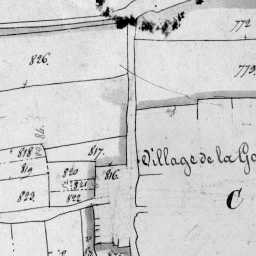 772
826.
773
817.
818
Village de la Go
819
820
816.
821
C
823.
822